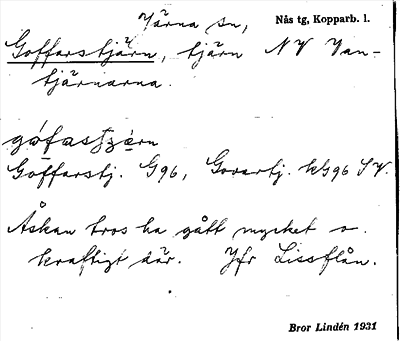 Järna sn, Nås tg, Kopparb. l.
Goffarstjärn, tjärn NV Van-
tjärnarna.
Goffarstj. G96, Govartj. kG96 SV.
Åskan tros ha gått mycket o.
kraftigt där. Jfr Lissflån.
Bror Lindén 1931